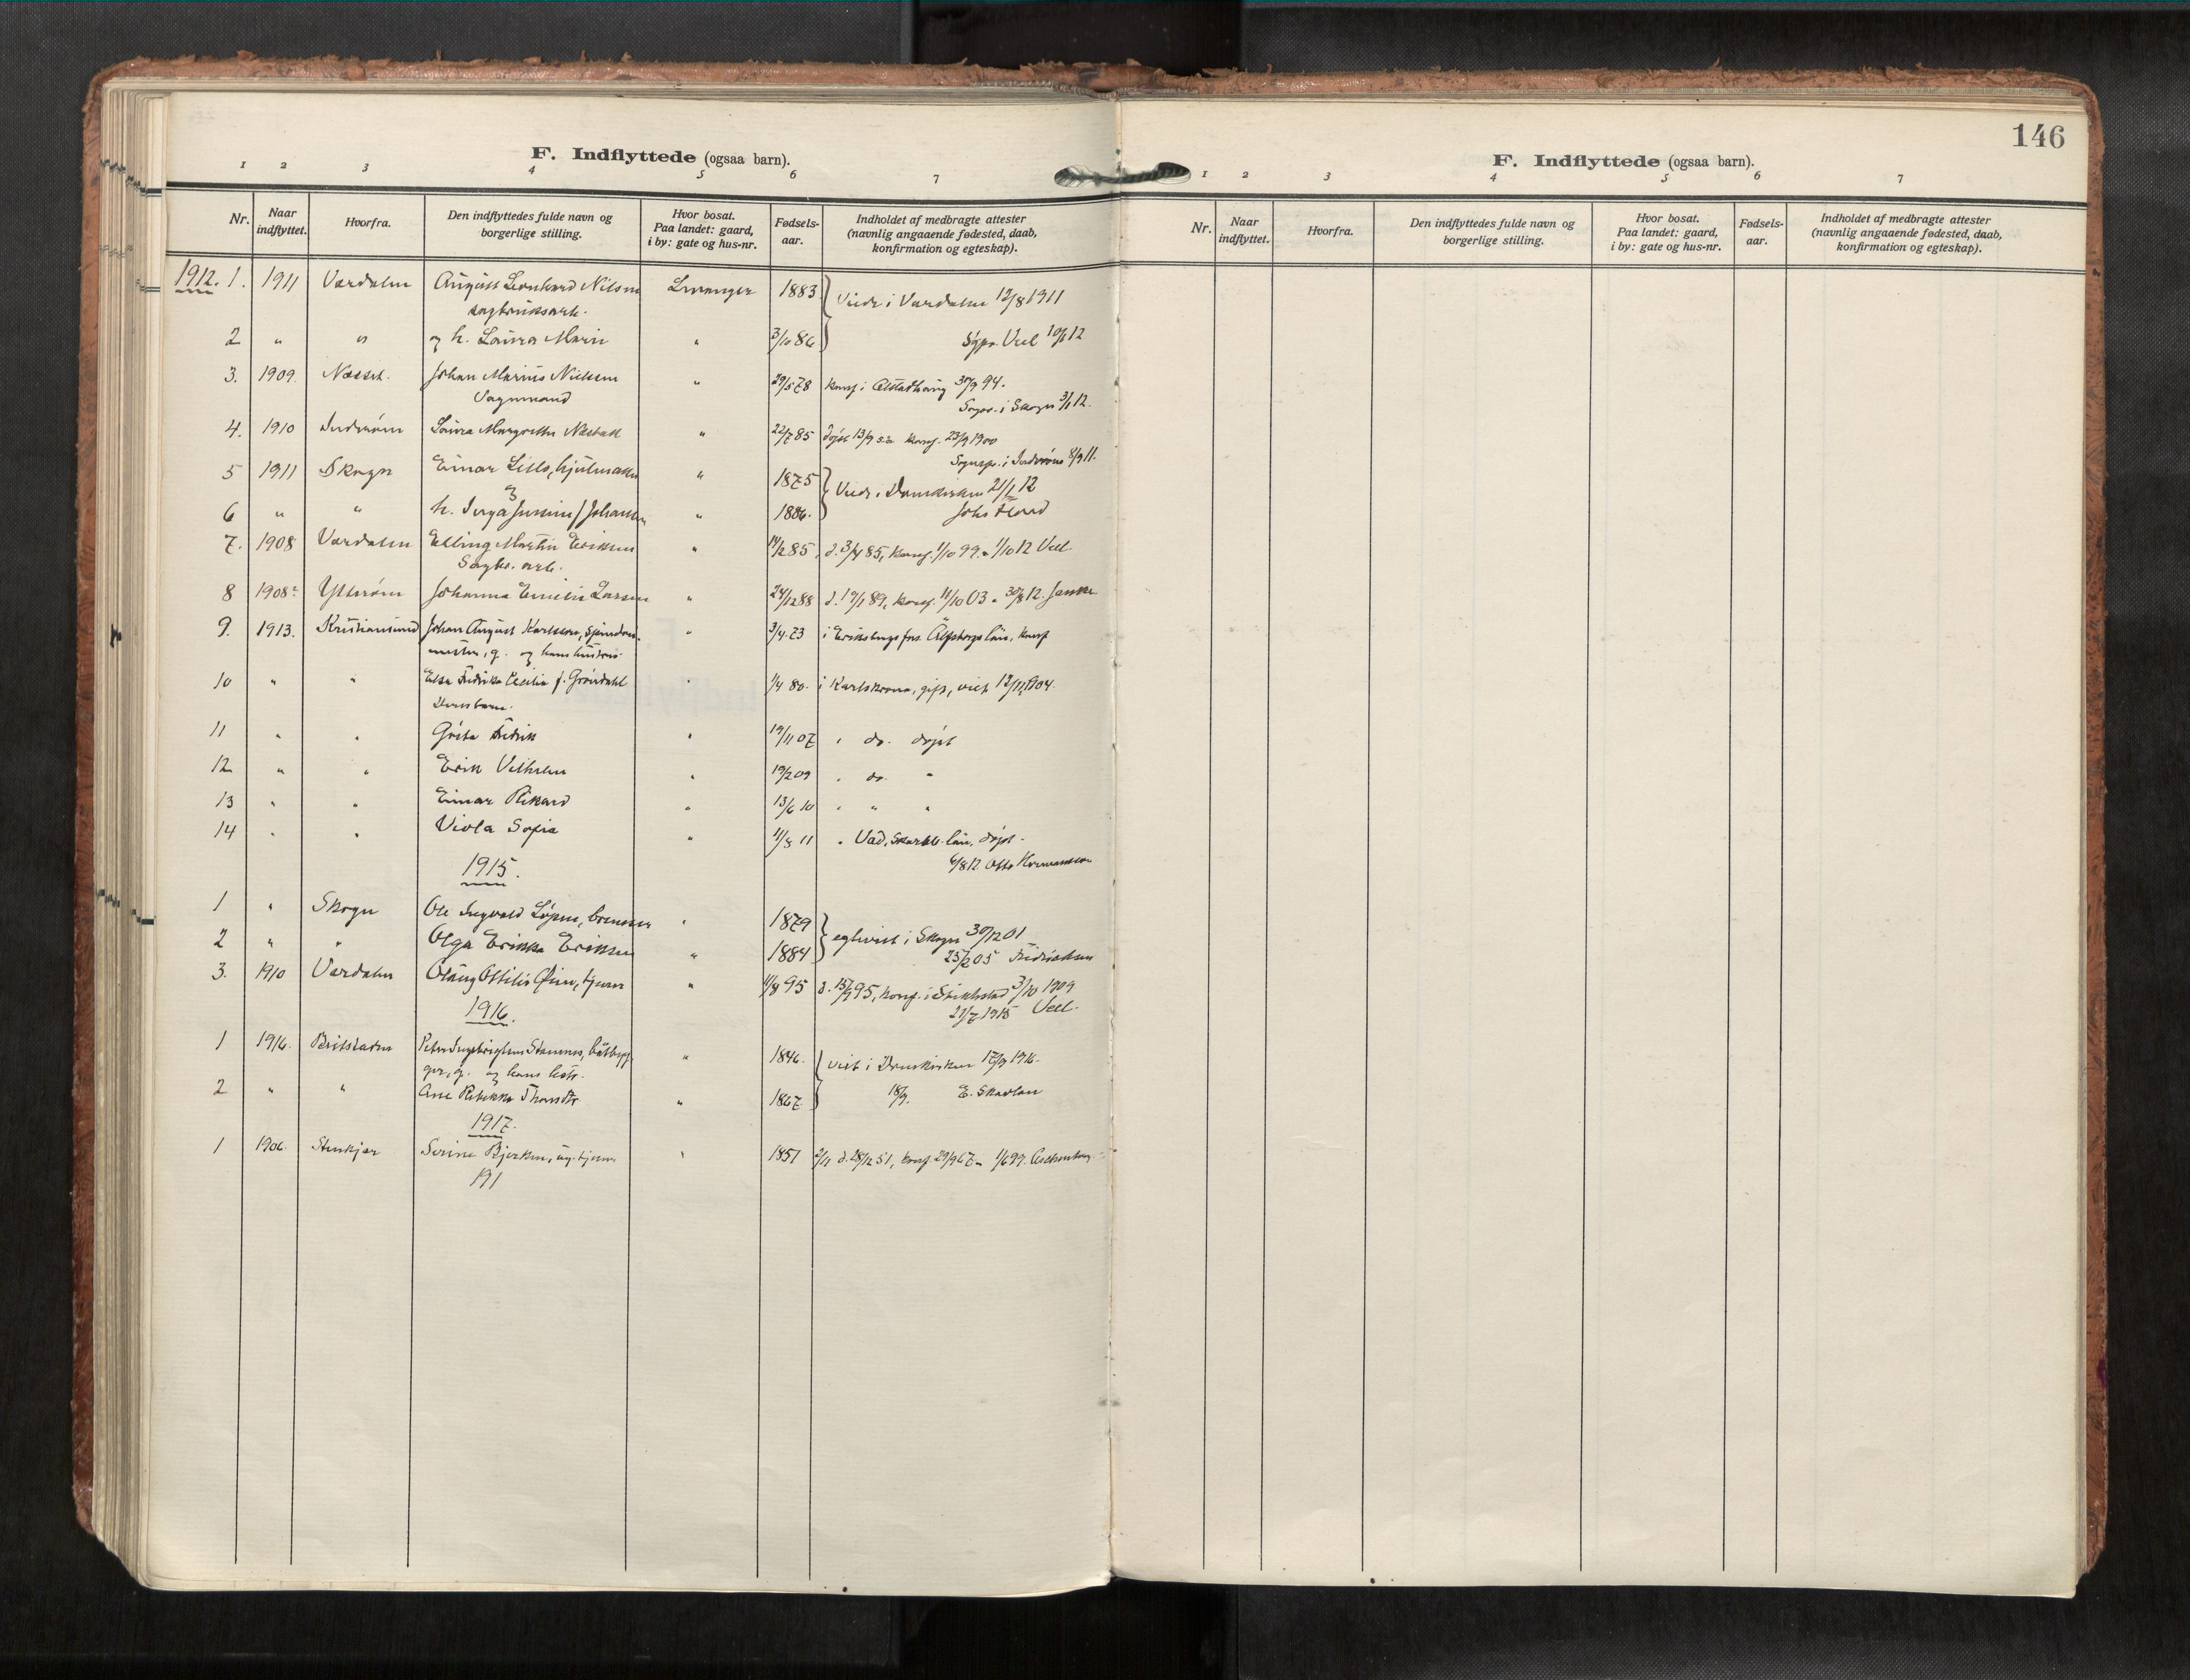 146
F. Indflyttede (ogsaa barn).
1 2 3 4 5 6 7
Nr. Naar indflyttet. Hvorfra. Den indflyttedes fulde navn og borgerlige stilling. Hvor bosat. Paa landet: gaard, i by: gate og hus-nr. Fødsels-aar. Indholdet af medbragte attester (navnlig angaaende fødested, daab, konfirmation og egteskap).
1912. 1. 1911 Værdalen August Leonhard Nilsen Levanger 1883 Viede i Værdalen 12/8 1911
sagbruksarb.
2 " " og h. Laura Marie " 3/10 86 Sgpr. Veel 10/1 12
3. 1909. Nesset. Johan Marius Nielsen " 29/5 78 konf. i Alstadhaug 30/9 94.
Vognmand Sogpr. i Skogn 3/1 12.
4. 1910 Inderøen Laura Margrethe " 22/7 85 døpt 13/9 s.a. konf. 23/9 1900
Sognepr. i Inderøen 8/9 11.
5 1911 Skogn Einar Lillo, hjulmaker " 1875 Viede i Domkirken 21/1 12
og
6 " " h. Inga " 1886.
7. 1908 Værdalen Elling Martin Eriksen " 14/2 85, d. 3/4 85, konf. 1/10 99. " 1/10 12 Veel.
Sagbr. arb.
8 1908 Ytterøen Johanna Emilie Larsen " 24/12 88 d. 19/1 89, konf. 11/10 03 " 30/8 12.
9. 1913. Kristiansund Johan August Karlsson, " 3/4. 73 i Eriksbergs fns. Älfsborgs län, konf
mester, g. og hans hustru
10 " " Elsa Fredrika Cecilia f. Gröndahl " 1/4 80. i Karlskrona, gift, viet 12/11 1904.
Deres barn.
11 " " Gösta Fredrik " 19/11 07 " do. døpt
12 " " Erik Vilhelm " 19/2 09 " do. "
13 " " Einar Rikard " 13/6 10 " " "
14 " " Viola Sofia " 11/8 11 " Vad, Skarab. län, døpt.
6/8 12 Otto Hermansson
1915.
1 " Skogn Ole Ingvald " 1879 egteviet i Skogn 30/12 01
2 " " Olga Erikka Eriksen " 1884 25/2 05
3. 1910 Værdalen Olaug Ottilie Øien, tjener " 11/8 95 d. 15/9 95, konf. i Stiklestad 3/10 1909
21/7 1915 Veel.
1916.
1 1916. Beitstaden Peter Ingebrigtsen Stamnes, båtbyg- " 1846. viet i Domkirken 17/9 1916.
ger, g. og hans hustr.
2 " " Ane Rebekka " 1867. 18/9. E. Skavlan
1917.
1 1906. Stenkjær Serine Bjerken, ug. tjener " 1851 2/11 d. 28/12 51, konf 29/9 67 " 1/6 99.
191
F. Indflyttede (ogsaa barn).
1 2 3 4 5 6 7
Nr. Naar indflyttet. Hvorfra. Den indflyttedes fulde navn og borgerlige stilling. Hvor bosat. Paa landet: gaard, i by: gate og hus-nr. Fødsels-aar. Indholdet af medbragte attester (navnlig angaaende fødested, daab, konfirmation og egteskap).